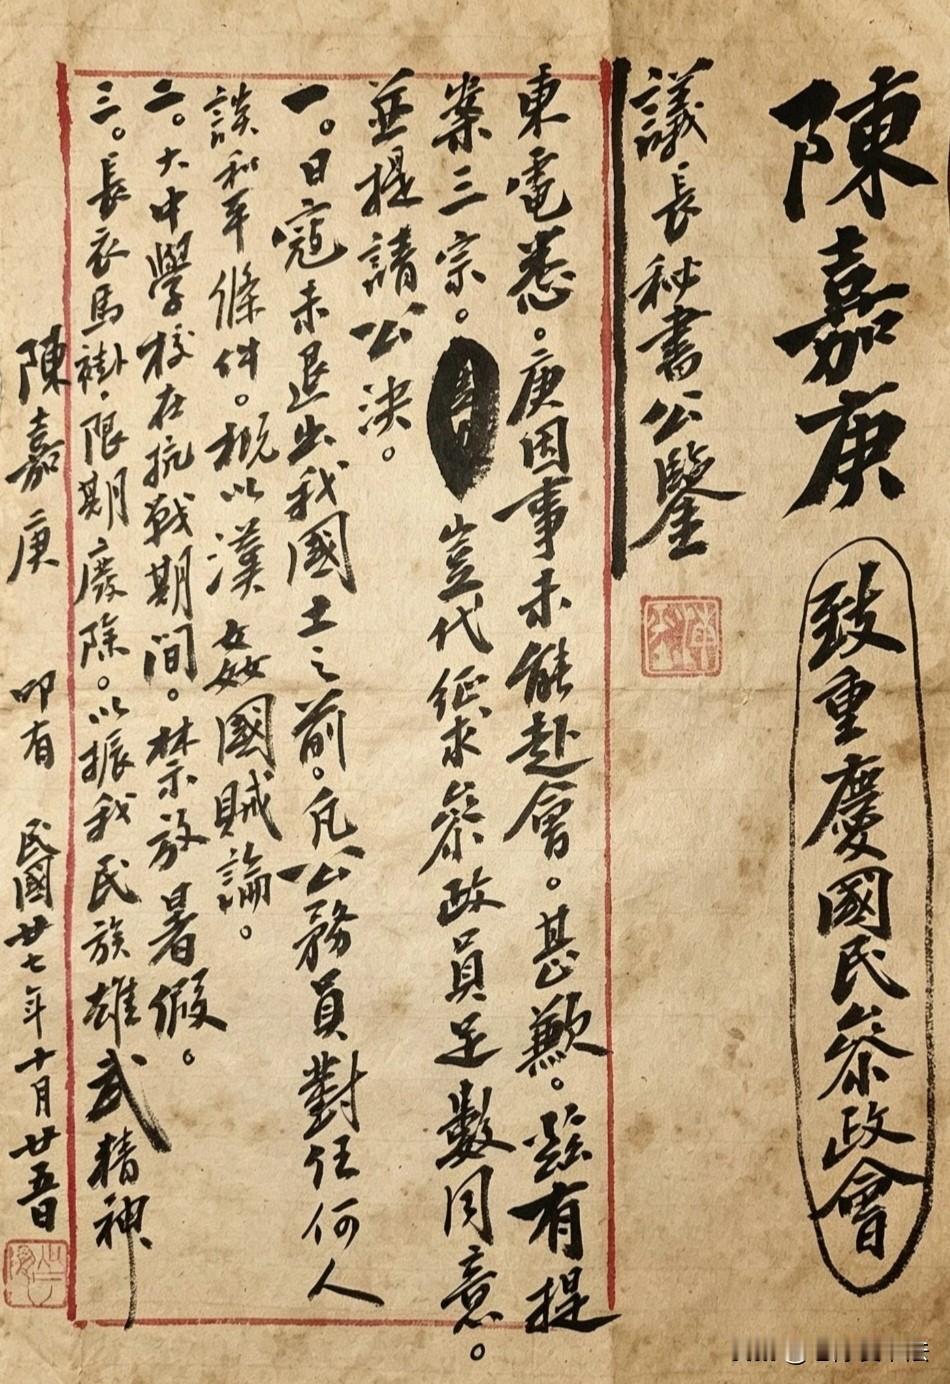 陳嘉庚 致重慶國民參政會
議長秘書公鑒
東電悉。庚因事未能赴會。甚歉。茲有提
案三宗。豈代征求參政員足數同意。
並提請公決。
一。日寇未退出我國土之前。凡公務員對任何人
談和平條件。概以漢姦國賊論。
二。大中學校在抗戰期間。禁放暑假。
三。長衣馬褂·限期廢除。以振我民族雄武精神
陳嘉庚 叩有 民國廿七年十月廿五日